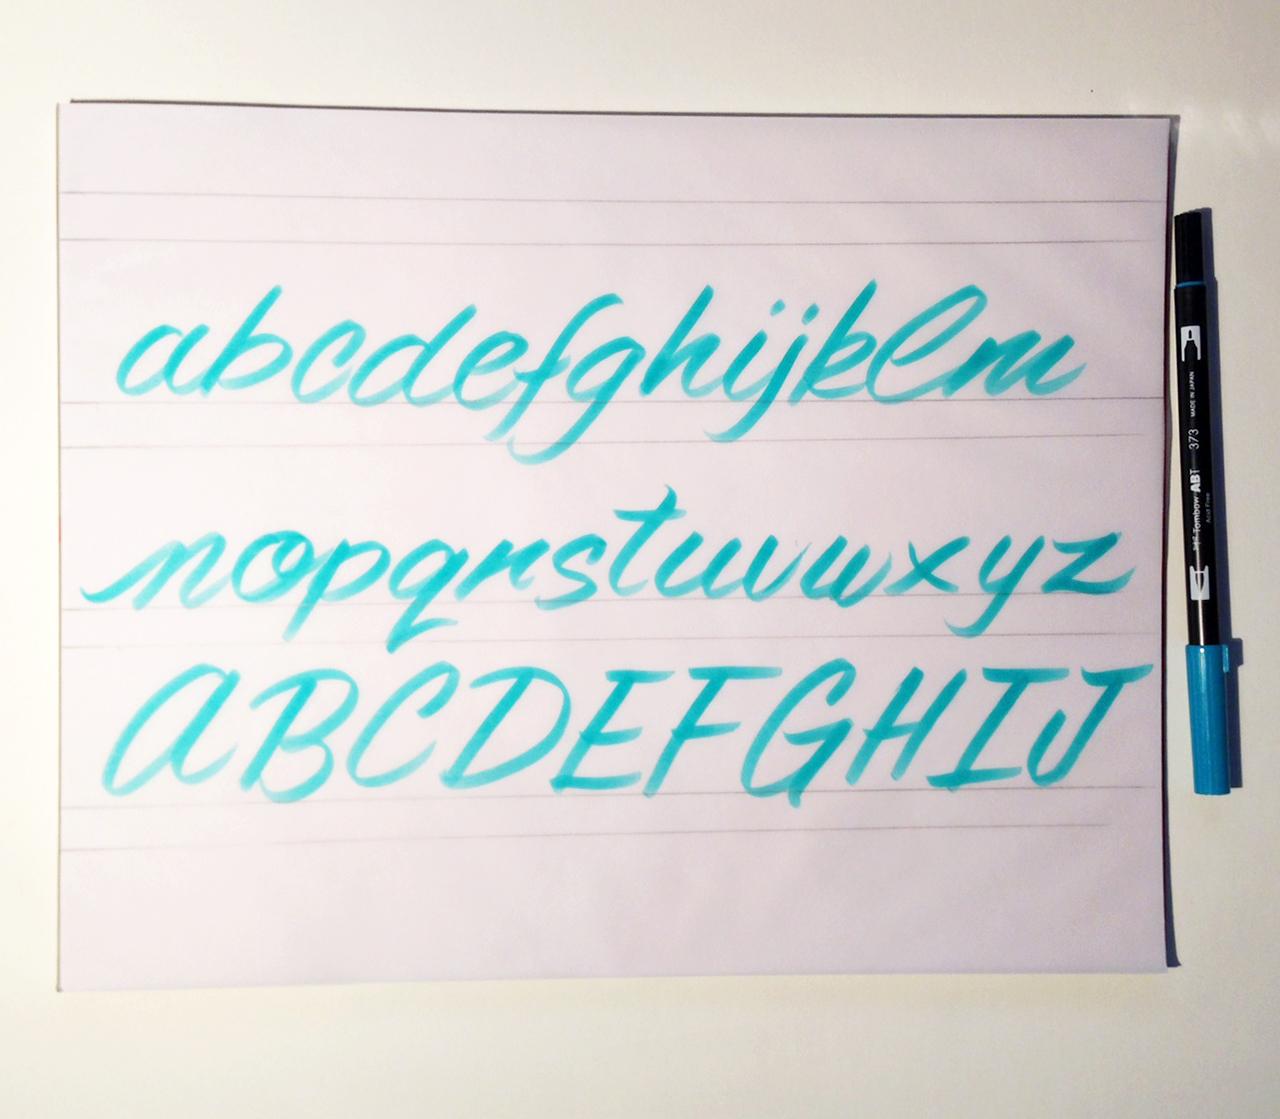 abcdefghijklm
nopqrstuvwxyz
ABCDEFGHIJ
MADE IN JAPAN
373
Tombow ABT
Acid Free